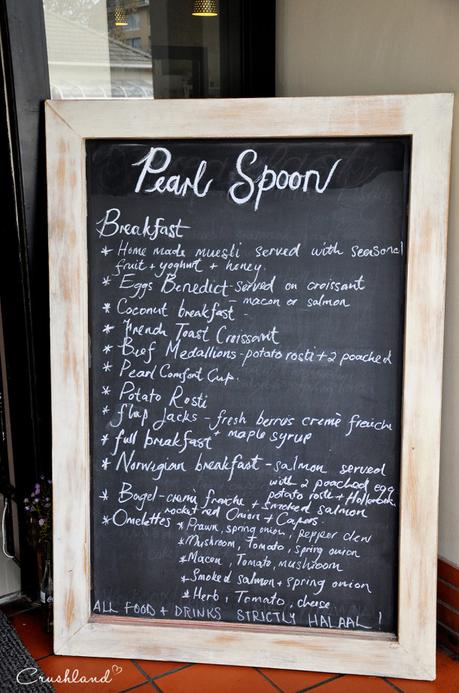 Pearl Spoon
Breakfast
* Home made muesli served with seasonal
fruit + yoghurt + honey.
* Eggs Benedict - served on croissant
- macon or salmon
* Coconut breakfast -
* French Toast Croissant
* Beef Medallions - potato rosti + 2 poached
* Pearl Comfort Cup.
* Potato Rosti
* flap Jacks - fresh berries cremè fraiche
+ maple syrup
* full breakfast
* Norwegian breakfast - salmon served
with 2 poached egg
potato rosti + Hollandaise
* Bagel - cremè fraiche + smoked salmon
rocket red Onion + Capers.
* Omelettes * Prawn, spring onion, pepper dew
* Mushroom, Tomato, spring onion
* Macon, Tomato, mushroom
* Smoked salmon + spring onion
* Herb, Tomato, cheese
ALL FOOD + DRINKS STRICTLY HALAAL !
Crushland